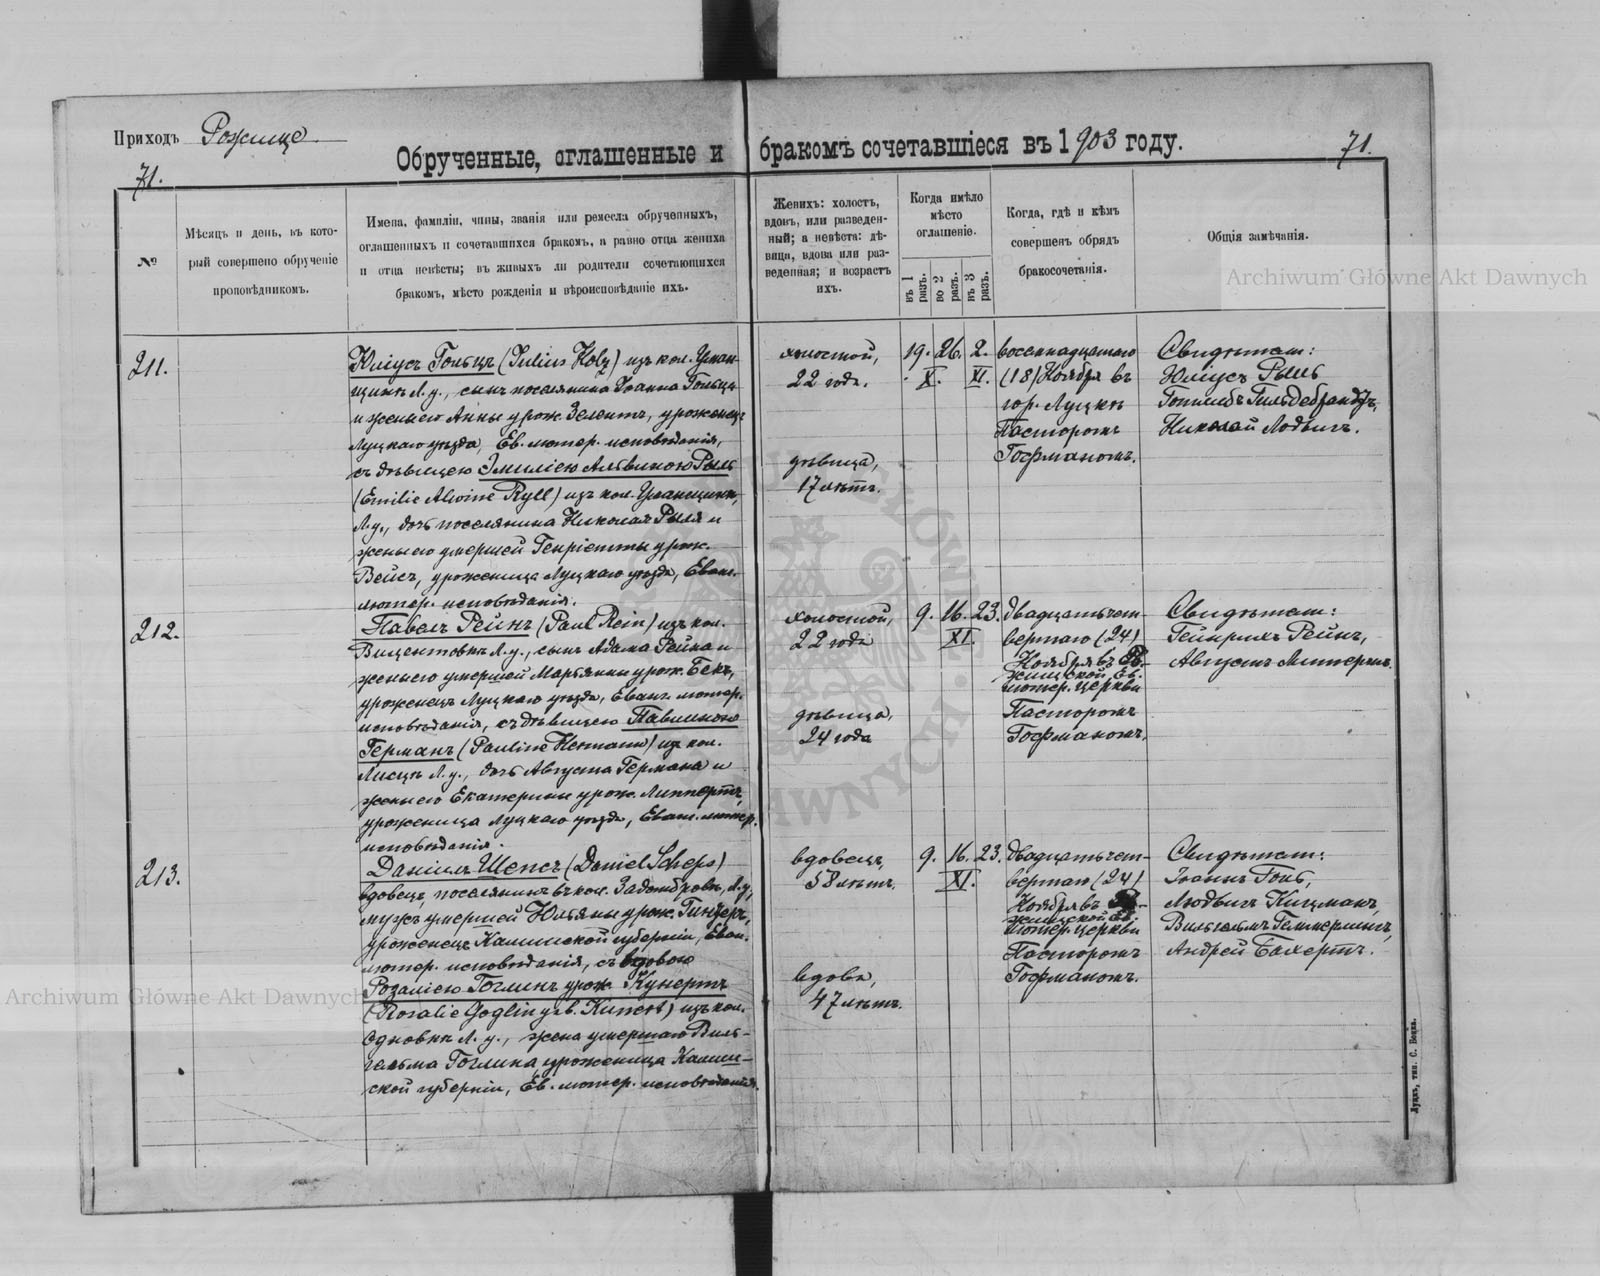 Приходъ Рожище
Обрученные, оглашенные и бракомъ сочетавшіеся въ 1903 году.
71.
71.
№
Мѣсяцъ и день, въ кото-
рый совершено обрученіе
проповѣдникомъ.
Имена, фамиліи, чины, званія или ремесла обрученныхъ,
оглашенныхъ и сочетавшихся бракомъ, а равно отца жениха
и отца невѣсты; въ живыхъ ли родители сочетающихся
бракомъ, мѣсто рожденія и вѣроисповѣданіе ихъ.
Женихъ: холостъ,
вдовъ, или разведен-
ный; а невѣста: дѣ-
вица, вдова или раз-
веденная; и возрастъ
ихъ.
Когда имѣло
мѣсто
оглашеніе.
въ 1
разъ.
во 2
разъ.
въ 3
разъ.
Когда, гдѣ и кѣмъ
совершенъ обрядъ
бракосочетанія.
Общія замѣчанія.
211.
Юліусъ Гольцъ (Julius Holz) изъ кол. Уман-
щинѣ Л. у., сынъ поселянина Іоанна Гольца
и жены его Анны урож. Зелентъ, уроженецъ
Луцкаго уѣзда, Ев. лютер. исповѣданія,
съ дѣвицею Эмиліею Альвиною Рыль
(Emilie Alwine Ryll) изъ кол. Уманщинѣ,
Л. у., дочь поселянина Николая Рыля и
жены его умершей Генріетты урож.
Вейсъ, уроженица Луцкаго уѣзда, Еван.
лютер. исповѣданія.
холостой,
22 года.
дѣвица,
17 лѣтъ.
19. 26. 2.
X. XI.
восемнадцатаго
(18) Ноября въ
гор. Луцкѣ
Пасторомъ
Гофманомъ.
Свидѣтели:
Юліусъ Рыль
Готлибъ Гильдебрандтъ,
Николай Лодвигъ.
212.
Павелъ Рейнъ (Paul Rein) изъ кол.
Вицентовкѣ Л. у., сынъ Адама Рейна и
жены его умершей Марьянны урож. Бекъ,
уроженецъ Луцкаго уѣзда, Еванг. лютер.
исповѣданія, съ дѣвицею Павлиною
Германъ (Pauline Hermann) изъ кол.
Лисцѣ Л. у., дочь Августа Германа и
жены его Екатерины урож. Липпертъ,
уроженица Луцкаго уѣзда, Еван. лютер.
исповѣданія.
холостой,
22 года
дѣвица,
24 года
9. 16. 23.
XI.
двадцатьчет-
вертаго (24)
Ноября въ Ро-
жищской Ев.
лютер. церкви
Пасторомъ
Гофманомъ.
Свидѣтели:
Гейнрихъ Рейнъ,
Августъ Липпертъ.
213.
Даніилъ Шепсъ (Daniel Scheps)
вдовецъ, поселянинъ въ кол. Задомбровѣ, Л. у,
мужъ умершей Юльяны урож. Гинцеръ,
уроженецъ Калишской губерніи, Еван.
лютер. исповѣданія, съ вдовою
Розаліею Гоглинъ урож. Кунертъ
(Rosalie Goglin geb. Kunert) изъ кол.
Одновкѣ Л. у., жена умершаго Виль-
гельма Гоглина, уроженица Калиш-
ской губерніи, Ев. лютер. исповѣданія.
вдовецъ,
58 лѣтъ.
вдова,
47 лѣтъ.
9. 16. 23.
XI.
двадцатьчет-
вертаго (24)
Ноября въ Ро-
жищской Ев.
лютер. церкви
Пасторомъ
Гофманомъ.
Свидѣтели:
Іоаннъ Голь,
Людвигъ Кицманъ,
Вильгельмъ Геммерлингъ,
Андрей Бахертъ.
Луцкъ, тип. С. Бокъ.
Archiwum Główne Akt Dawnych
Archiwum Główne Akt Dawnych